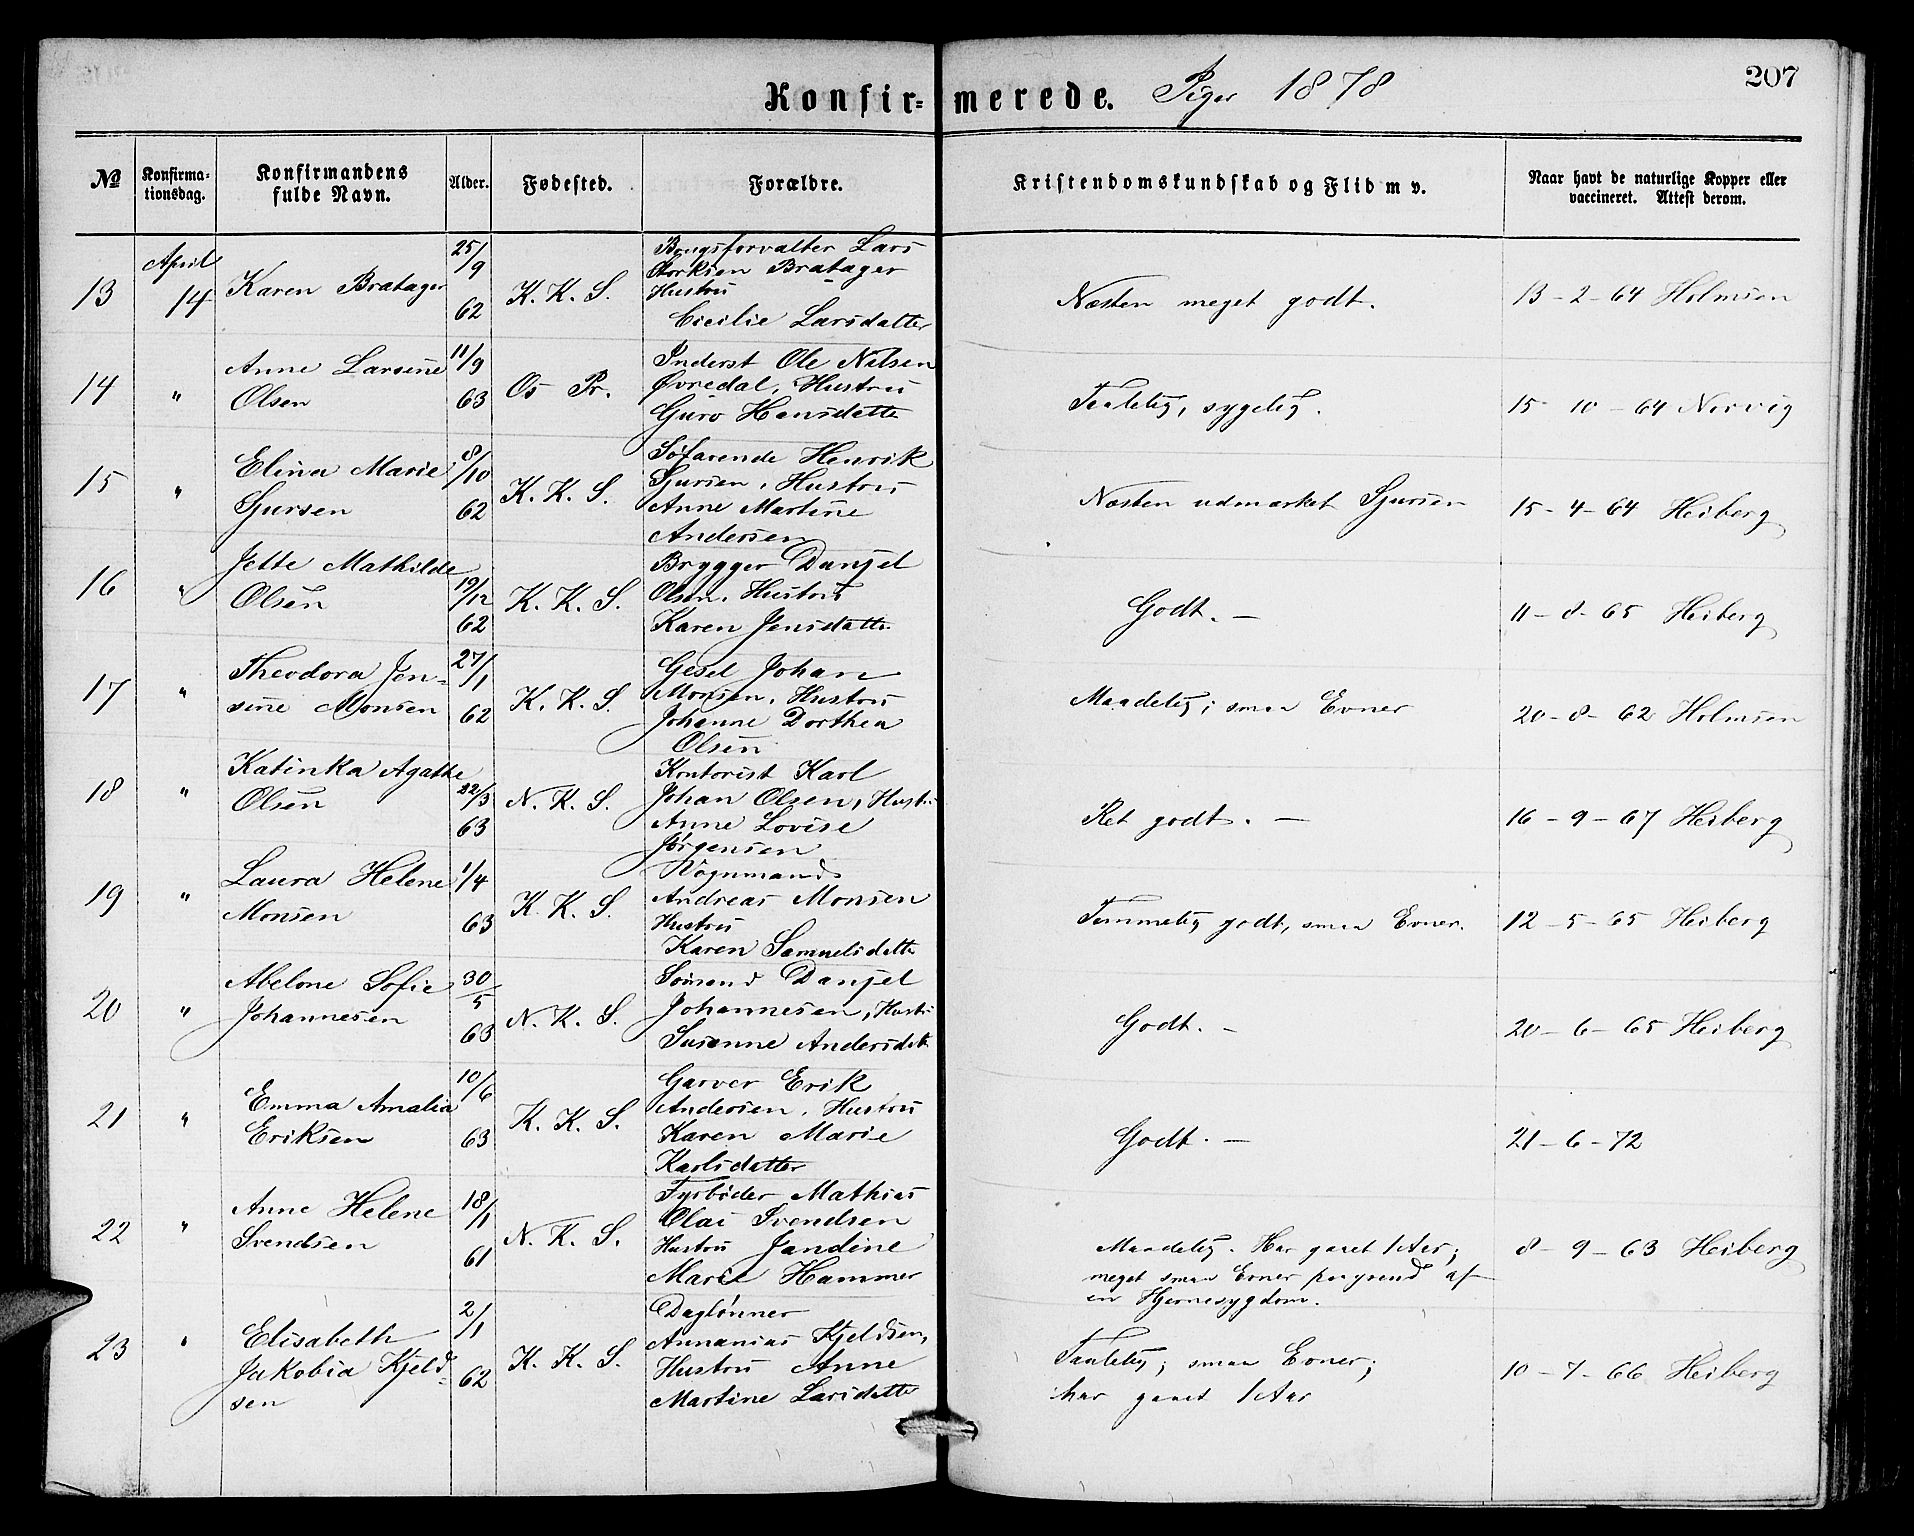 Konfir-merede. Piger 1878
207
No
Konfirma-tionsdag.
Konfirmandens fulde Navn.
Alder.
Fødested.
Forældre.
Kristendomskundskab og Flid m v.
Naar havt de naturlige Kopper eller vaccineret. Attest derom.
13 April 14 Karen Bratager 25/9 62 K. K. S.
Lars
Bratager
Hustru
Cicilie Larsdatter
Næsten meget godt. 13-2-64 Holmsen
14 " Anne Larsine
Olsen 11/9 63 Os Pr.
Inderst Ole Nilsen
Øvredal, Hustru
Guro Hansdatter
Taalelig, sygelig. 15-10-64 Nervig
15 " Elina Marie
Sjursen 8/10 62 K. K. S.
Søfarende Henrik
Sjursen, Hustru
Anne Martine
Andersen
Næsten udmærket Sjursen 15-4-64 Heiberg
16 " Jette Mathilde
Olsen 19/12 62 K. K. S.
Brygger Danjel
Olsen, Hustru
Karen Jensdatter
Godt. — 11-8-65 Heiberg
17 " Theodora Jen-
sine Monsen 27/1 62 K. K. S.
Gesel Johan
Monsen, Hustru
Johanne Dorthea
Olsen
Maadelig; smaa Evner 20-8-62 Holmsen
18 " Katinka Agathe
Olsen 22/3 63 N. K. S.
Kontorist Karl
Johan Olsen, Hustru
Anne Lovise
Jørgensen
Ret godt. — 16-9-67 Heiberg
19 " Laura Helene
Monsen 1/4 63 K. K. S.
Vognmand
Andreas Monsen
Hustru
Karen Samuelsdatter
Temmelig godt, smaa Evner. 12-5-65 Heiberg
20 " Abelone Sofie
Johannesen 30/5 63 N. K. S.
Sømand Danjel
Johannesen, Hustru
Susanne Andersdatt
Godt. — 20-6-65 Heiberg
21 " Emma Amalia
Eriksen 10/6 63 K. K. S.
Garver Erik
Andersen, Hustru
Karen Marie
Karlsdatter
Godt. — 21-6-72
22 " Anne Helene
Svendsen 18/1 61 N. K. S.
Fyrbøder Mathias
Olai Svendsen
Hustru Jandine
Marie Hammer
Maadelig. Har gaaet 1 Aar;
meget smaa Evner paagrund af
en Hjernesygdom. 8-9-63 Heiberg
23 " Elisabeth
Jakobia Kjeld-
sen 2/1 62 K. K. S.
Daglønner
Annanias Kjeldsen,
Hustru Anne
Martine Larsdatter
Taalelig; smaa Evner;
har gaaet 1 Aar 10-7-66 Heiberg